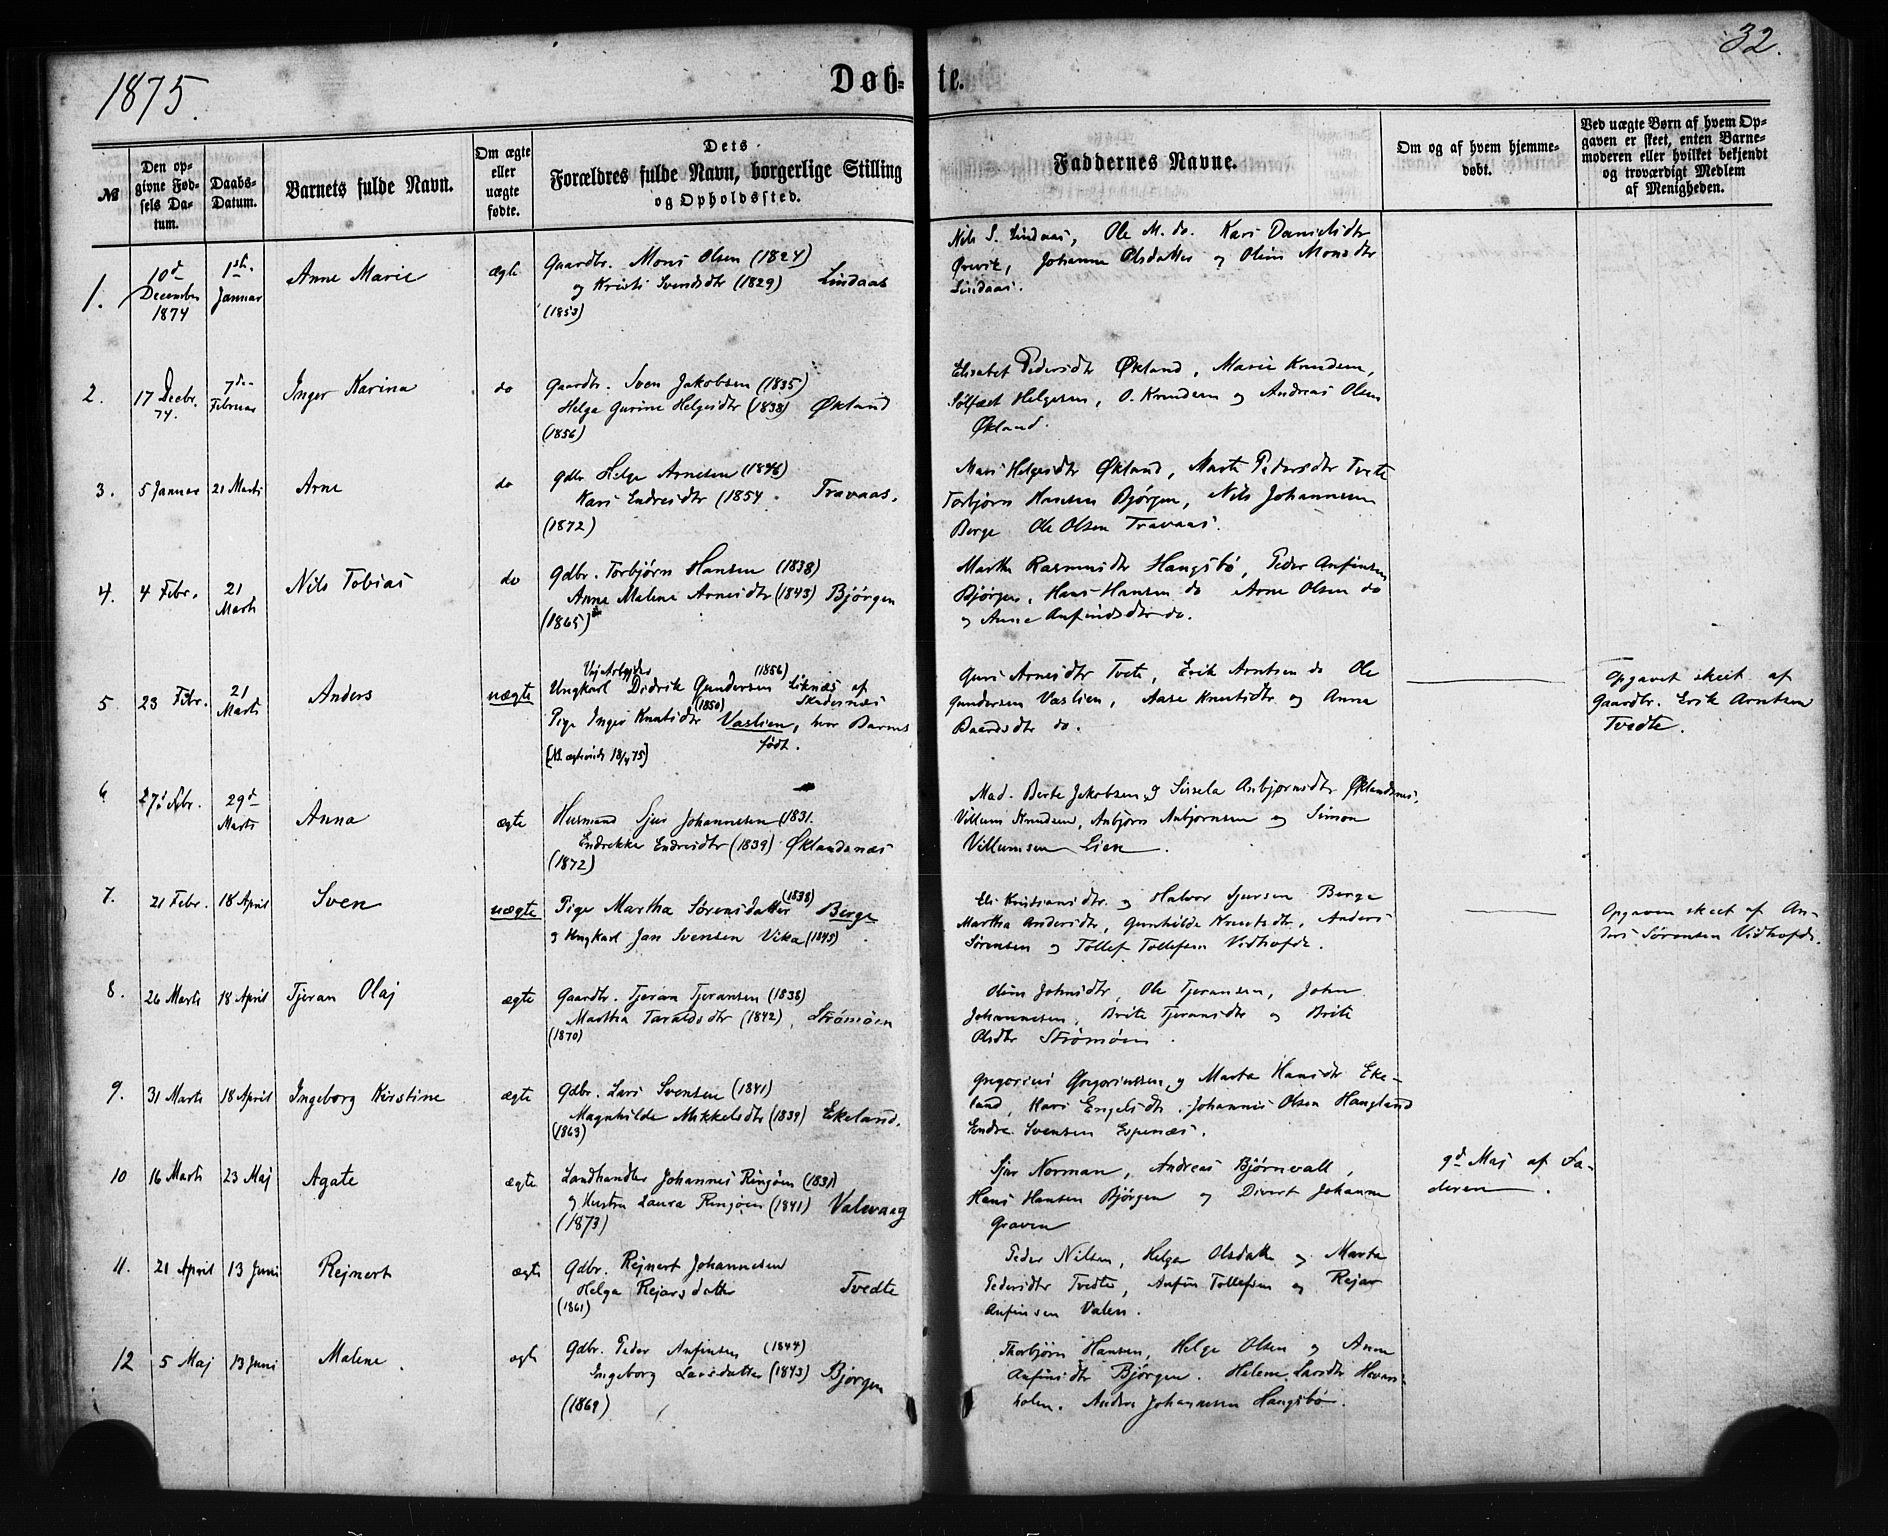 1875.
Døb-
te.
32.
№
Den op-
givne Fød-
sels Da-
tum.
Daabs-
Datum.
Barnets fulde Navn.
Om ægte
eller
uægte
fødte.
Dets
Forældres fulde Navn, borgerlige Stilling
og Opholdssted.
Faddernes Navne.
Om og af hvem hjemme-
døbt.
Ved uægte Børn af hvem Op-
gaven er skeet, enten Barne-
moderen eller hvilket bekjendt
og troværdigt Medlem
af Menigheden.
1.
10d
December
1874
1ste
Januar
Anne Marie
ægte
Gaardbr. Mons Olsen (1824)
og Kristi Svendsdtr (1829) Lindaas
(1853)
Nils S. Lindaas, Ole M. do. Kari Danielsdtr
Ørevik, Johanne Olsdatter og Oline Monsdtr
Lindaas.
2.
17 Decbr.
74.
7de
Februar
Inger Karina
do
Gaardbr. Sven Jakobsen (1835)
Helga Gurine Helgesdtr (1838) Økland
(1856)
Elisabet Pedersdtr Økland, Marie Knudsen,
Helgesen, O. Knudsen og Andreas Olsen
Økland.
3.
5 Januar
21 Marts
Arne
do
Gdbr Helge Arnesen (1846)
Kari Endresdtr (1854. Travaas.
(1872)
Mari Helgesdtr Økland, Marte Pedersdtr Tvete
Torbjørn Hansen Bjørgen, Nils Johannesen
Berge Ole Olsen Travaas.
4.
4 Febr.
21
Marts
Nils Tobias
do
Gdbr. Torbjørn Hansen (1838)
Anne Malene Arnesdtr (1843) Bjørgen
(1865)
Martha Rasmusdtr Haugsbø, Peder Anfinsen
Bjørgen, Hans Hansen do Arne Olsen do
og Anne Anfindsdtr do.
5
23 Febr.
21
Marts
Anders
uægte
Vejarbejder (1856)
Ungkarl Didrik Gundersen Liknæs af
Skudesnæs
(1850)
Pige Inger Knutsdtr Vaslien, hvor Barnet
født.
18/4 75]
Guri Arnesdtr Tvete, Erik Arntsen do Ole
Gundersen Vaslien, Aase Knutsdtr og Anna
Baardsdtr do.
Opgavet skeet af
Gaardbr. Erik Arntsen
Tvedte.
6
27de Febr.
29d
Marts
Anna
ægte
Husmand Sjur Johannesen (1831.
Endrekka Endresdtr (1839) Øklandsnæs
(1872)
Mad. Berte Jakobsen, og Sissela Anbjørnsdtr Øklandsnæs,
Villum Knudsen, Anbjørn Anbjørnsen og Simon
Villumsen Lien.
7.
21 Febr.
18 April
Sven
uægte
Pige Martha Sørensdatter (1838) Berge
og Ungkarl Jan Svensen Vika (1845)
Eli Kristiansdtr. og Halvor Sjursen Berge
Martha Andersdtr, Gunhilde Knutsdtr, Anders
Sørensen og Tollef Tollefsen Vidhofde.
Opgaven skeet af An-
ders Sørensen Vidhofde.
8.
26 Marts
18 April
Tjeran Olaj
ægte
Gaardbr. Tjeran Tjeransen (1838)
Martha Taraldsdtr (1842), Strømøen
(1870)
Oline Johnsdtr, Ole Tjeransen, John
Johannesen, Brite Tjeransdtr og Brite
Olsdtr Strømøen.
9.
31 Marts
18 April
Ingeborg Kirstine
ægte
Gdbr. Lars Svensen (1841)
Magnhilde Mikkelsdtr (1839) Ekeland.
(1863)
Gregorius Gregoriussen, og Marta Hansdtr Eke-
land, Kari Engelsdtr. Johannes Olsen Haugland
Endre Svensen Espenæs.
10
16 Marts
23 Maj
Agate
ægte
Landhandler Johannes Ringøen (1831)
og Hustru Laura Ringøen (1841) Valevaag
(1873)
Sjur Norman, Andreas Bjørnevall,
Hans Hansen Bjørgen og Divert Johanne
Graven
9d Maj af Fa-
deren.
11.
21 April
13 Juni
Rejnert
ægte
Gdbr. Rejnert Johannesen
Helga Rejarsdatter Tvedte
(1861)
Peder Nilsen, Helga Olsdatter og Marta
Pedersdtr Tvedte, Anfin Tollefsen og Rejar
Anfinsen Valen.
12
5 Maj
13 Juni
Malene.
ægte
Gdbr. Peder Anfinsen (1844)
Ingeborg Larsdatter (1843) Bjørgen
(1869)
Thorbjørn Hansen, Helge Olsen og Anne
Anfinsdtr Bjørgen. Helene Larsdtr
Anders Johannesen Haugsbø.